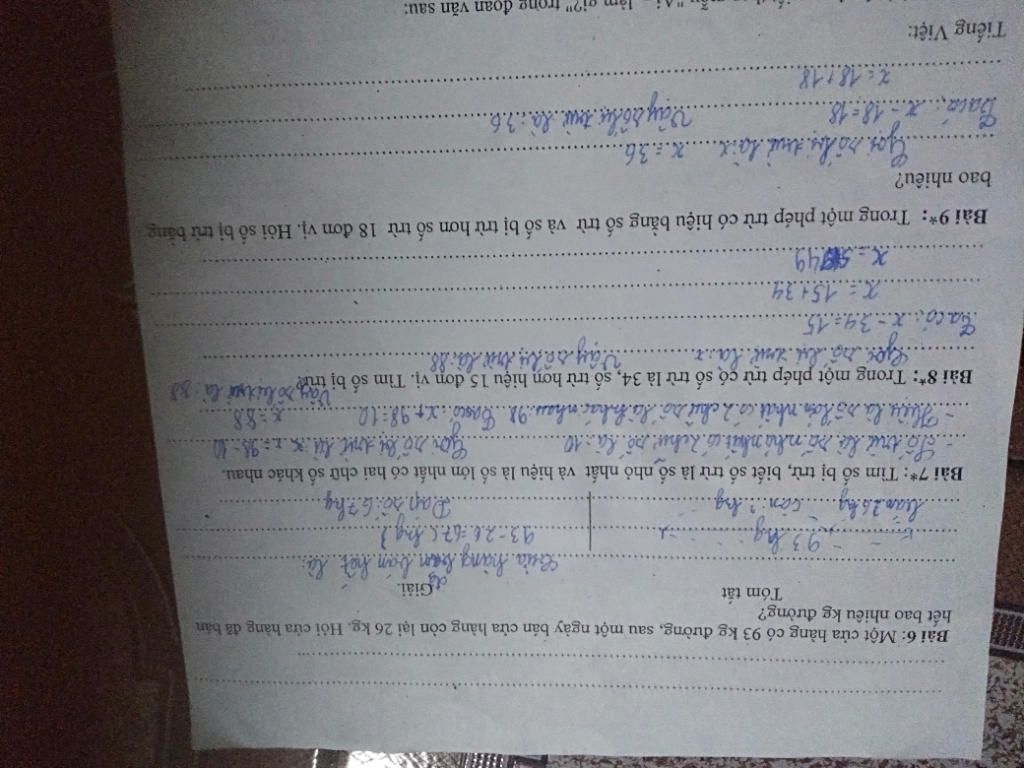 Bài 6: Một cửa hàng có 93 kg đường, sau một ngày bán cửa hàng còn lại 26 kg. Hỏi cửa hàng đã bán
hết bao nhiêu kg đường?
Tóm tắt
Giải.
Cửa hàng bán hết là:
93 kg
93 - 26 = 67 (kg)
26 kg còn: ? kg
Đáp số: 67 kg
Bài 7*: Tìm số bị trừ, biết số trừ là số nhỏ nhất và hiệu là số lớn nhất có hai chữ số khác nhau.
- Số trừ là số nhỏ nhất có 2 chữ số là: 10
Gọi số bị trừ là x. x - 98 = 10
- Hiệu là số lớn nhất có 2 chữ số là khác nhau: 98
Ta có: x + 98 = 10
x = 88
Vậy số bị trừ là 88
Bài 8*: Trong một phép trừ có số trừ là 34, số trừ hơn hiệu 15 đơn vị. Tìm số bị trừ.
Gọi số bị trừ là: x
Vậy số bị trừ là: 88
Ta có: x - 34 = 15
x = 15 + 34
x = 49
Bài 9*: Trong một phép trừ có hiệu bằng số trừ và số bị trừ hơn số trừ 18 đơn vị. Hỏi số bị trừ bằng
bao nhiêu?
Gọi số bị trừ là x
x = 36
Ta có: x - 18 = 18
Vậy số bị trừ là: 36
x = 18 + 18
Tiếng Việt:
"Ai - làm gì?" trong đoạn văn sau: